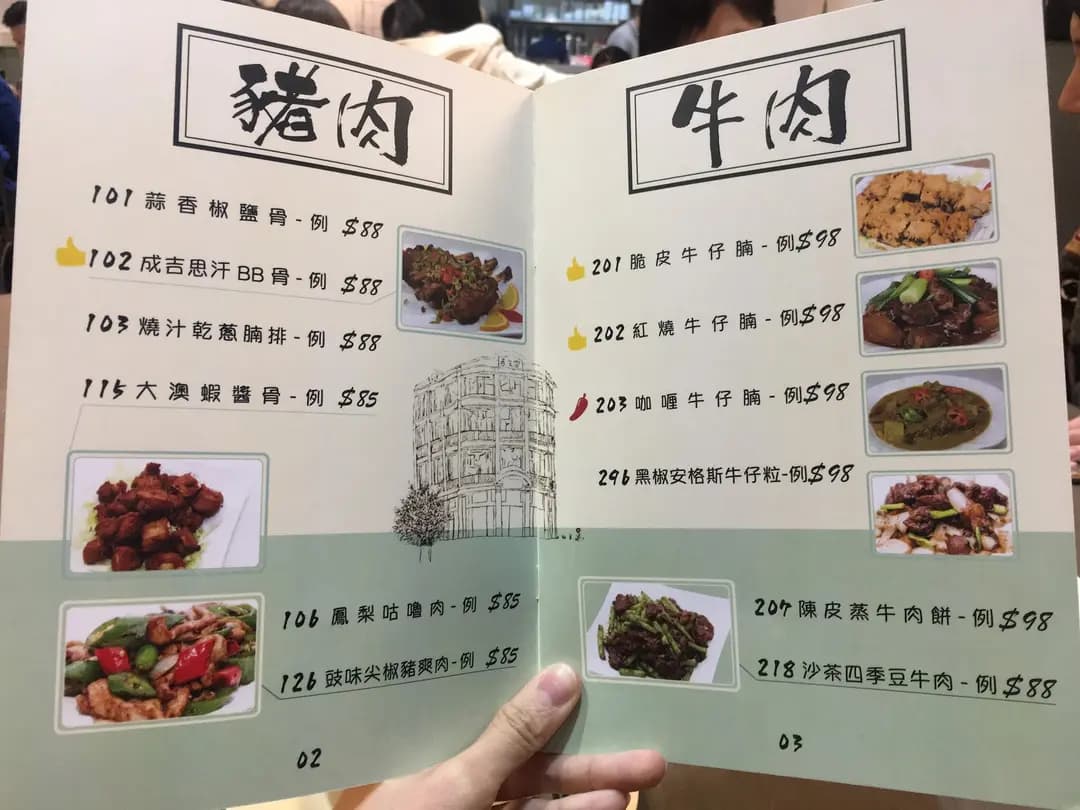 豬肉
101 蒜香椒鹽骨-例 $88
102 成吉思汗BB骨-例 $88
103 燒汁乾蔥腩排-例 $88
115 大澳蝦醬骨-例 $85
106 鳳梨咕嚕肉-例 $85
126 豉味尖椒豬爽肉-例 $85
02
牛肉
201 脆皮牛仔腩-例$98
202 紅燒牛仔腩-例$98
203 咖喱牛仔腩-例$98
296 黑椒安格斯牛仔粒-例$98
207 陳皮蒸牛肉餅-例$98
218 沙茶四季豆牛肉-例$88
03